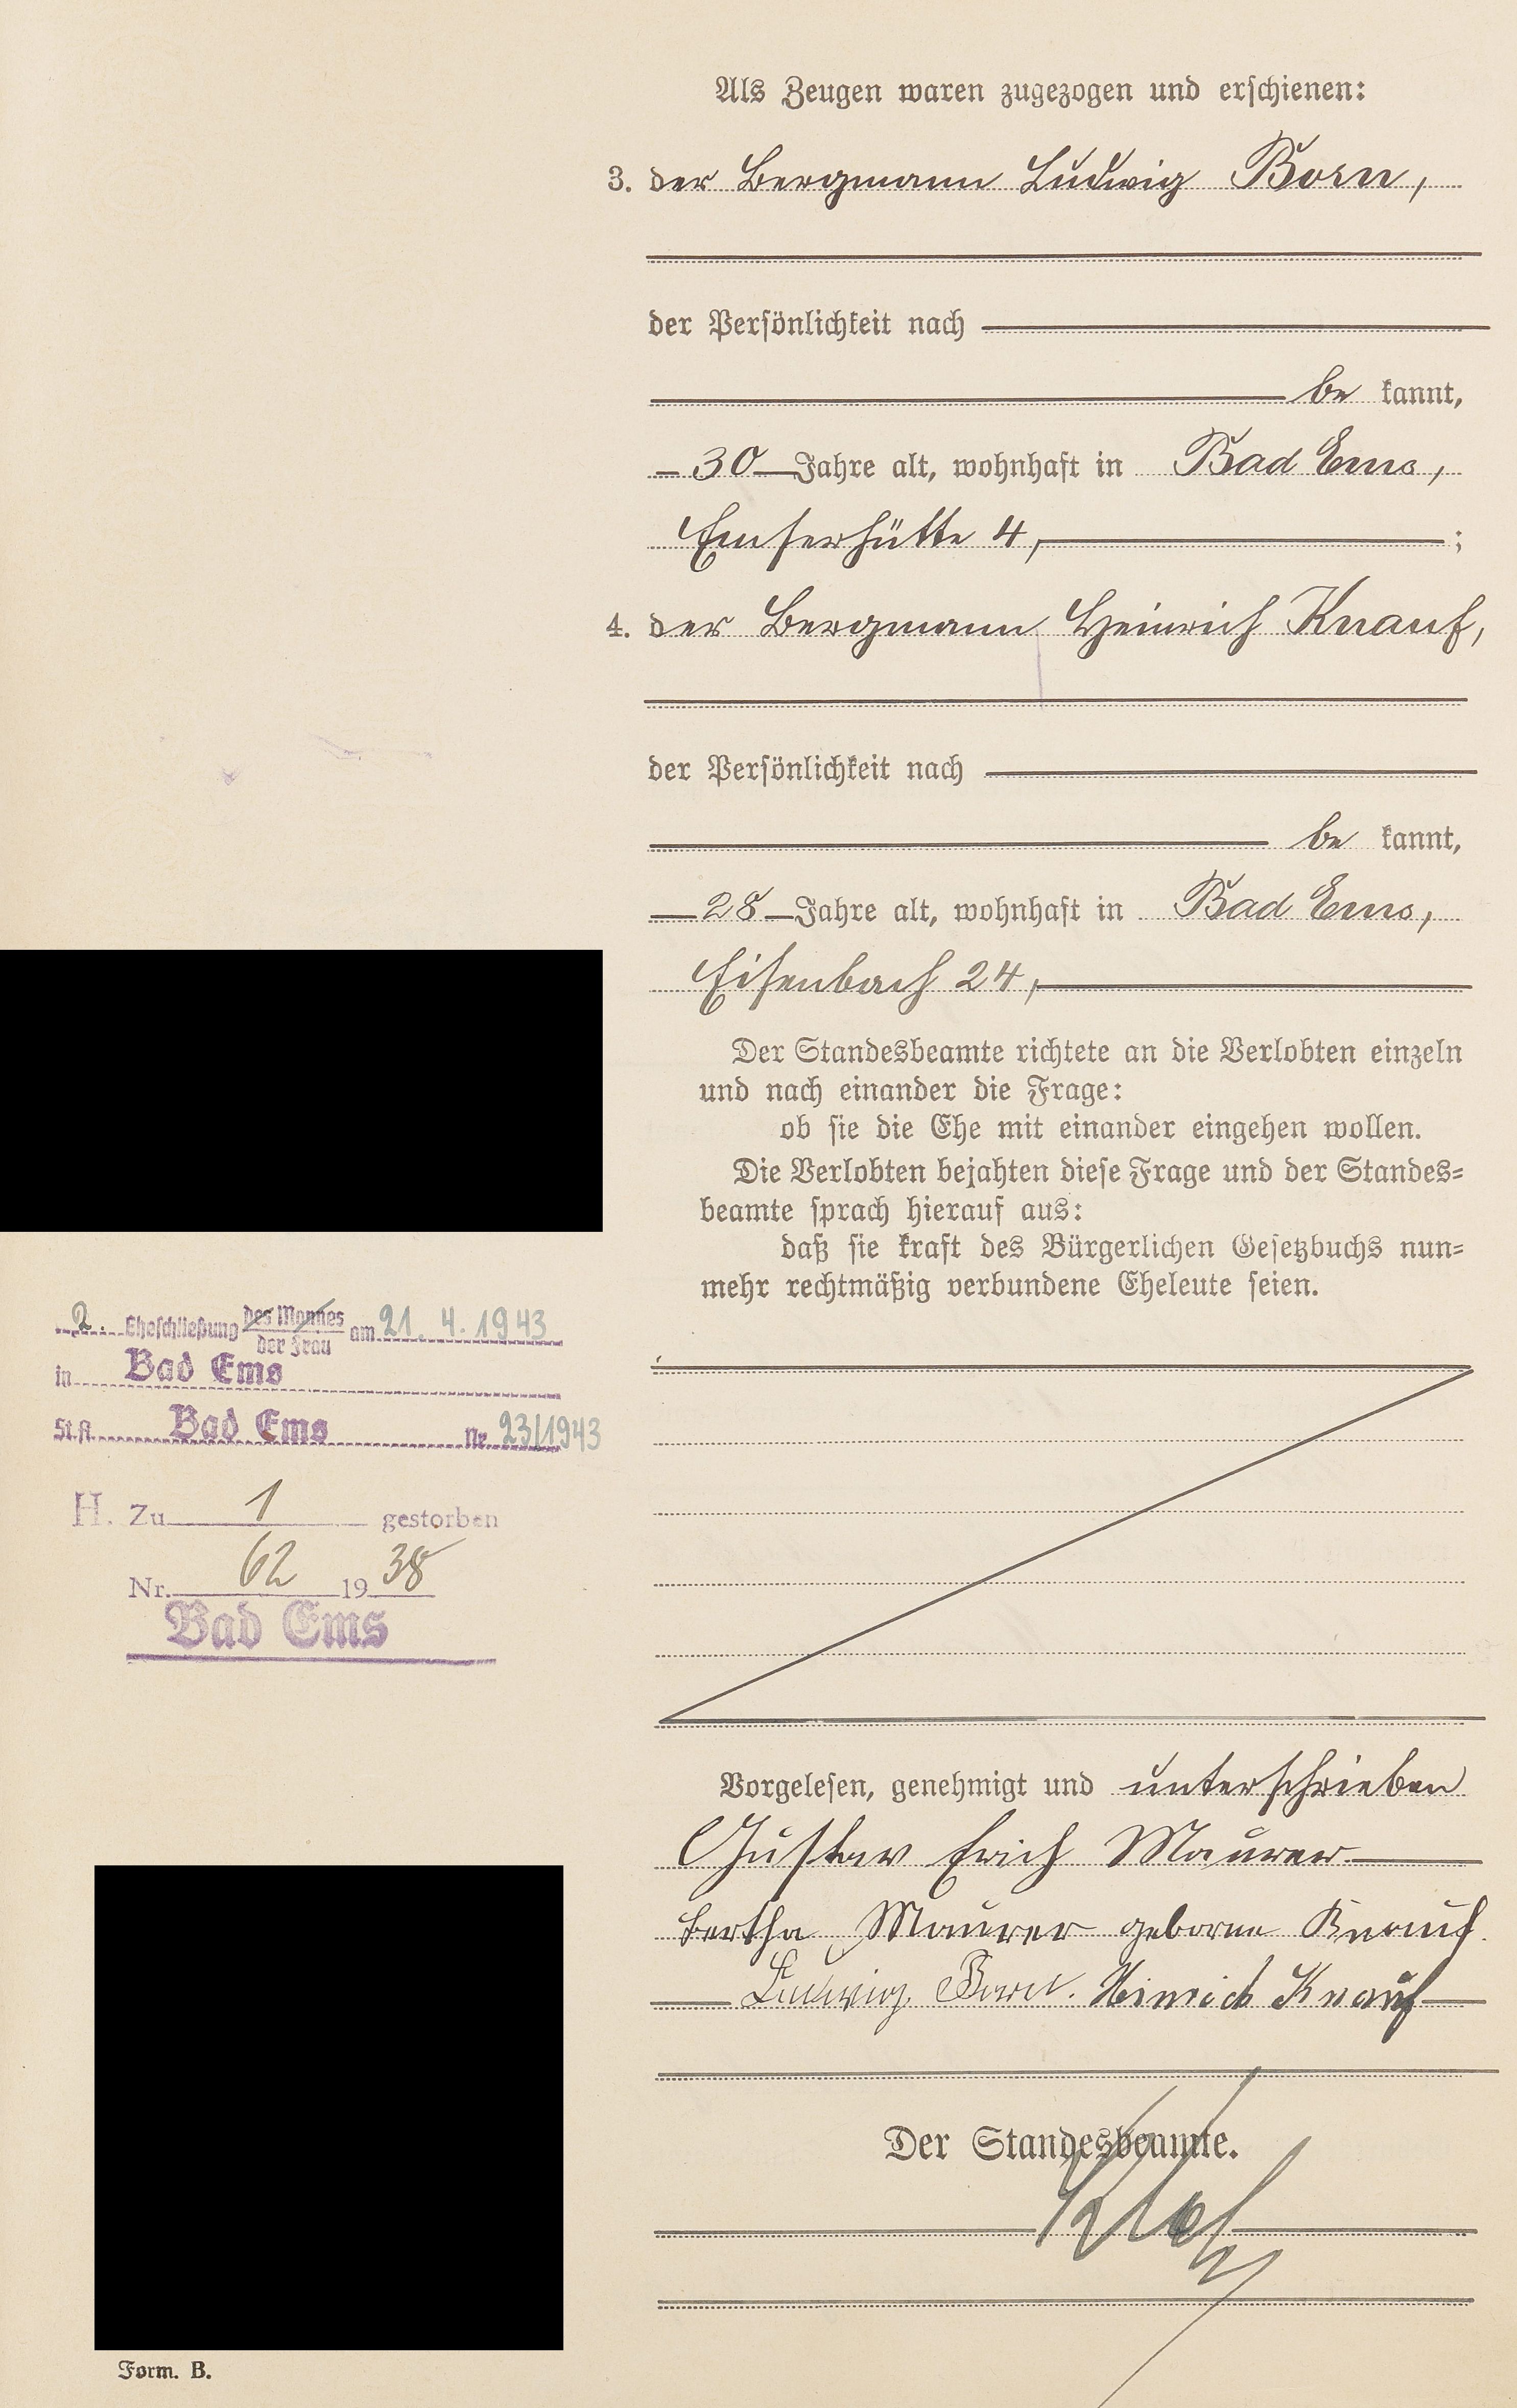 Als Zeugen waren zugezogen und erschienen:
3. der Bergmann Ludwig Born,
der Persönlichkeit nach
be kannt,
30 Jahre alt, wohnhaft in Bad Ems,
Emserhütte 4, ;
4. der Bergmann Heinrich Knauf,
der Persönlichkeit nach
be kannt,
28 Jahre alt, wohnhaft in Bad Ems,
Eisenbach 24,
Der Standesbeamte richtete an die Verlobten einzeln
und nach einander die Frage:
ob sie die Ehe mit einander eingehen wollen.
Die Verlobten bejahten diese Frage und der Standes=
beamte sprach hierauf aus:
daß sie kraft des Bürgerlichen Gesetzbuchs nun=
mehr rechtmäßig verbundene Eheleute seien.
2. Eheschließung des Mannes
der Frau am 21. 4. 1943
in Bad Ems
St.A. Bad Ems Nr. 23/1943
H. Zu 1 gestorben
Nr. 62 1938
Bad Ems
Vorgelesen, genehmigt und unterschrieben
Gustav Erich Maurer
Bertha Maurer geborne Knauf.
Ludwig Born. Heinrich Knauf
Der Standesbeamte.
Form. B.